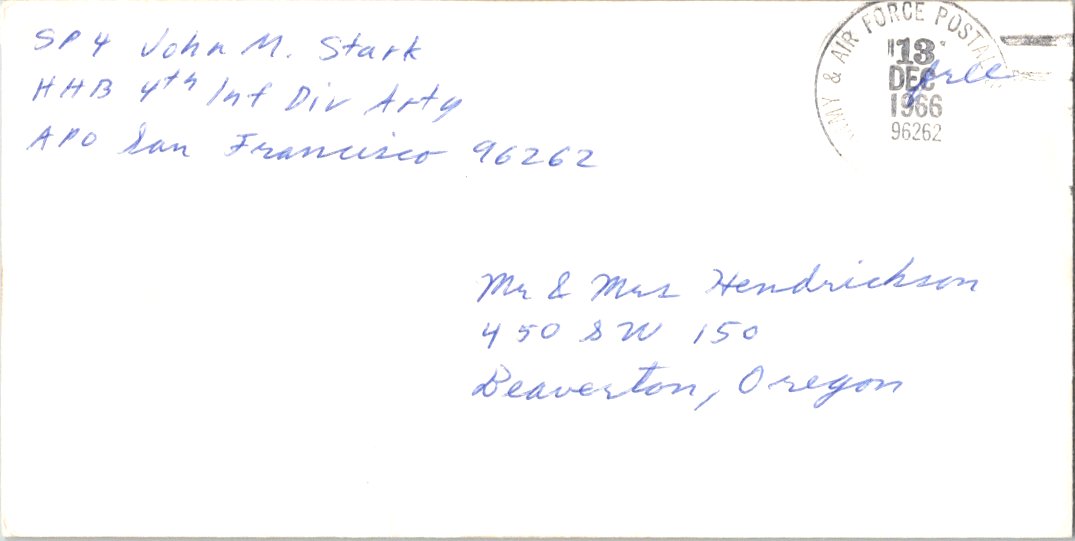 SP4 John M. Stark
HHB 4th Inf Div Arty
APO San Francisco 96262
ARMY & AIR FORCE POSTAL
13
DEC
1966
96262
free
Mr & Mrs Hendrickson
450 SW 150
Beaverton, Oregon